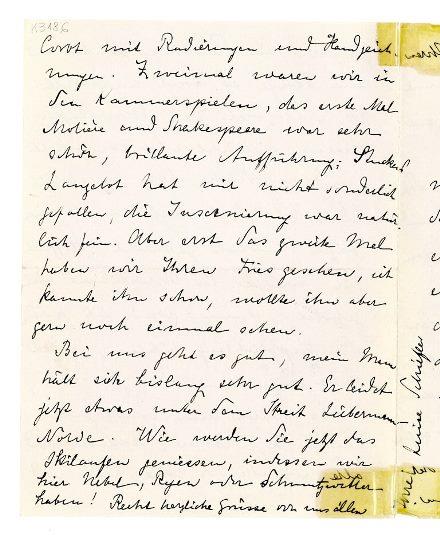 K3186
Corot mit Radierungen und Handzeich-
nungen. Zweimal waren wir in
den Kammerspielen, das erste Mal
Molière und Shakespeare war sehr
schön, brillante Aufführung; Stuckens
Lanzelot hat mir nicht sonderlich
gefallen, die Inscenierung war natür
lich fein. Aber erst das zweite Mal
haben wir Ihren Fries gesehen, ich
kannte ihn schon, wollte ihn aber
gern noch einmal sehen.
Bei uns geht es gut, mein Mann
hält sich bislang sehr gut. Er leidet
jetzt etwas unter dem Streit Liebermann-
Nolde. Wie werden Sie jetzt das
Skilaufen geniessen, indessen wir
hier Nebel, Regen oder Schmutzwetter
haben! Recht herzliche Grüsse von uns allen
Ihre Luise Schiefler
Ihren